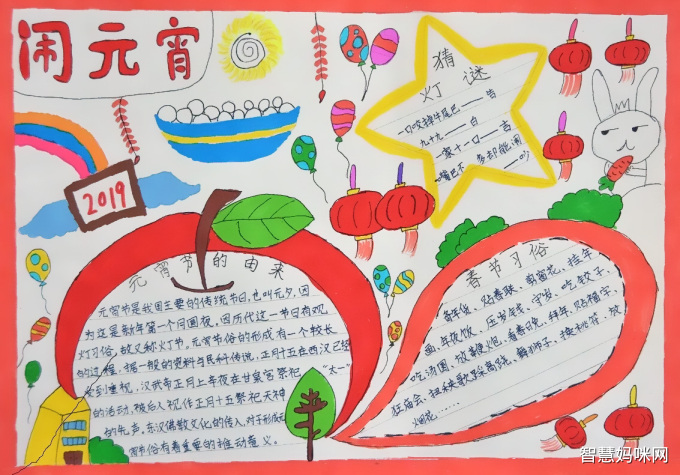 闹元宵
2019
猜
灯谜
一口咬掉牛尾巴——告
九十九——白
一家十一口——吉
嘴巴不多却能闹
——吵
元宵节的由来
元宵节是我国主要的传统节日,也叫元夕,因
为这是新年第一个月圆夜,因历代这一节日有观
灯习俗,故又称灯节。元宵节俗的形成有一个较长
的过程,据一般的资料与民俗传说,正月十五在西汉已经
受到重视,汉武帝正月上辛夜在甘泉宫祭祀"太一"
的活动,被后人视作正月十五祭祀天神
的先声,东汉佛教文化的传入,对于形成元
宵节俗有着重要的推动意义。
春节习俗
备年货、贴春联、剪窗花、挂年
画、年夜饭、压岁钱、守岁、吃饺子、
吃汤圆、放鞭炮、看春晚、拜年、贴福字、
逛庙会、扭秧歌踩高跷、舞狮子、换桃符、放
烟花……
智慧妈咪网